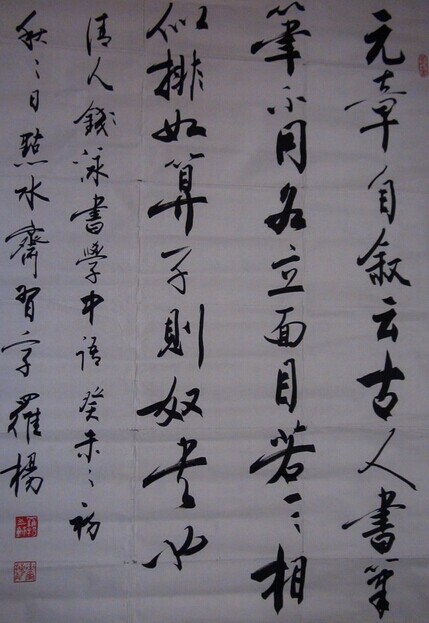 元章自叙云古人書筆
筆不同各立面目若一一相
似排如算子則奴書也
清人錢泳書學中語癸未之初
秋之日點水齋習字羅楊